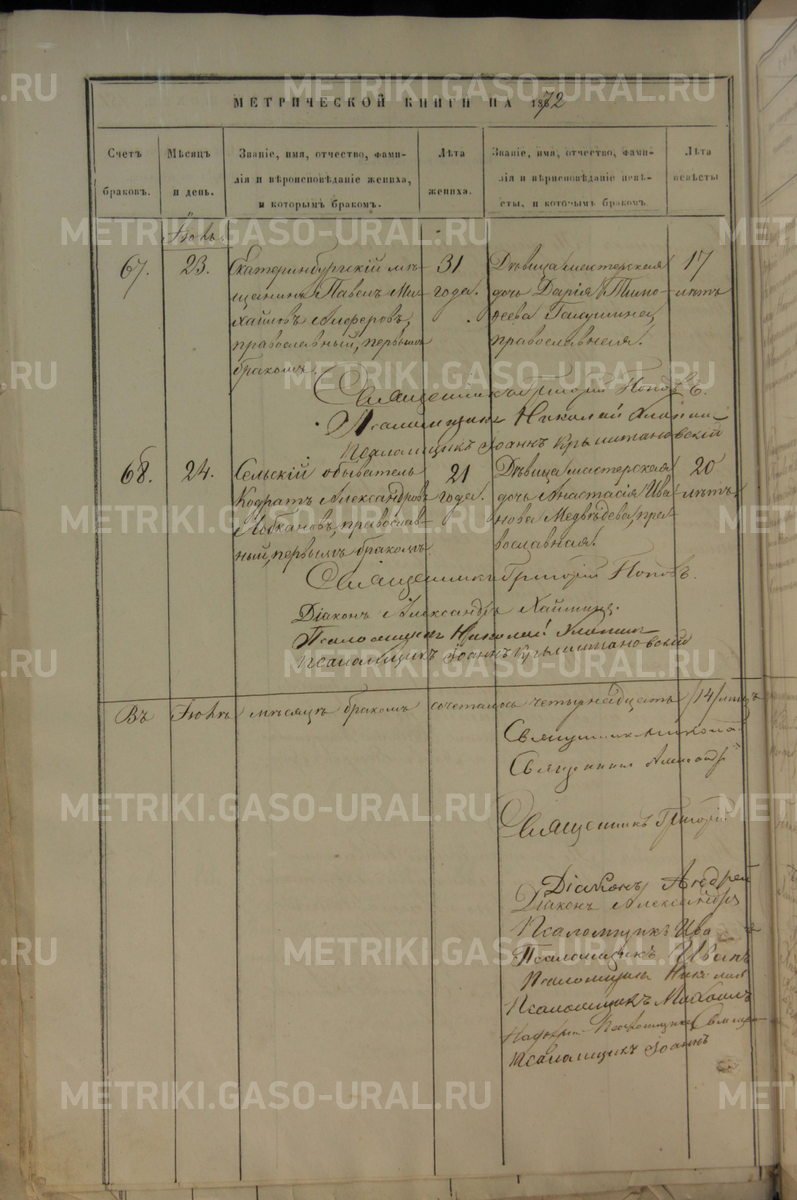 МЕТРИЧЕСКОЙ КНИГИ НА 1872
Счетъ браковъ.
Мѣсяцъ и день.
Званіе, имя, отчество, фами-
лія и вѣроисповѣданіе жениха,
и которымъ бракомъ.
Лѣта жениха.
Званіе, имя, отчество, фами-
лія и вѣроисповѣданіе невѣ-
сты, и которымъ бракомъ
Лѣта невѣсты
67.
23.
Екатеринбургскій мѣ-
щанинъ Павелъ Ми-
хайловъ Алферовъ,
православный, первымъ
бракомъ.
31
года.
Дѣвица мастерская
дочь Дарія Тимо-
ѳеева
православная.
17
лѣтъ
Священникъ Григорій Поповъ.
Псаломщикъ Николай
Псаломщикъ Іоаннъ
68.
24.
Сельскій обыватель
Кодратъ Александровъ
Лобановъ, православ-
ный, первымъ бракомъ
21
года.
Дѣвица мастерская
дочь Анастасія Ива-
нова Медвѣдева, пра-
вославная.
20
лѣтъ
Священникъ Григорій Поповъ.
Діаконъ Александръ
Псаломщикъ Николай
Псаломщикъ Іоаннъ
Въ Іюлѣ мѣсяцѣ бракомъ сочеталось четырнадцать /14/
Священникъ
Священникъ
Священникъ Григорій
Діаконъ Андрей
Діаконъ Александръ
Псаломщикъ Ива
Псаломщикъ Иванъ
Псаломщикъ Николай
Псаломщикъ Михаилъ
Псаломщикъ Іоаннъ
METRIKI.GASO-URAL.RU